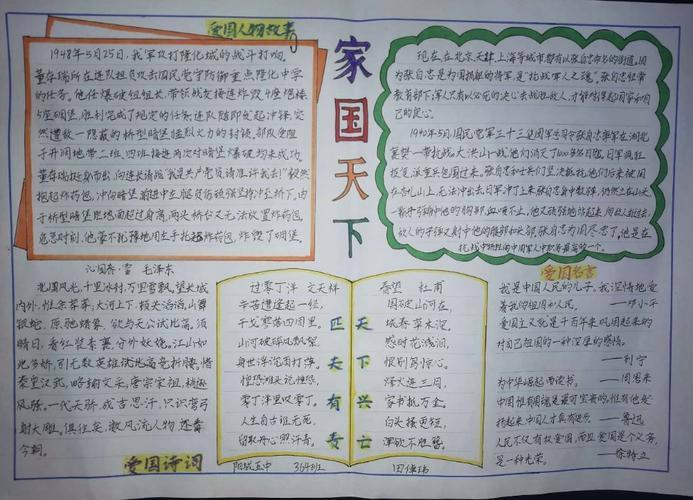 爱国人物故事
1948年5月25日，我军攻打隆化城的战斗打响。
董存瑞所在连队担负攻击国民党守防御重点隆化中学
的任务。他任爆破组组长，带领战友接连炸毁4座炮楼、
5座碉堡，胜利完成了规定的任务。连队随即发起冲锋，突
然遭敌一隐蔽的桥型暗堡猛烈火力的封锁。部队受阻
于开阔地带，二班、四班接连两次对暗堡爆破均未成功。
董存瑞挺身而出，向连长请战："我是共产党员，请准许我去！"毅然
抱起炸药包，冲向暗堡，前进中左腿负伤，顽强坚持冲至桥下。由
于桥型暗堡距地面超过身高，两头桥台又无法放置炸药包，
危急时刻，他毫不犹豫地用左手托起炸药包，炸毁了碉堡。
家国天下
现在，在北京、天津、上海等城市都有以张自忠命名的街道，因
为张自忠是为国捐躯的将军，是"抗战军人之魂"。张自忠经常
教育部下：军人只有以必死的决心去战胜敌人，才能对得起国家和自
己的良心。
1940年5月，国民党军第三十三集团军总司令张自忠率军在湖北
沁园春·雪 毛泽东
北国风光，千里冰封，万里雪飘。望长城
内外，惟余莽莽；大河上下，顿失滔滔。山舞
银蛇，原驰蜡象，欲与天公试比高。须
晴日，看红装素裹，分外妖娆。江山如
此多娇，引无数英雄竞折腰。惜
秦皇汉武，略输文采；唐宗宋祖，稍逊
风骚。一代天骄，成吉思汗，只识弯弓
射大雕。俱往矣，数风流人物，还看
今朝。
爱国诗词
过零丁洋 文天祥
辛苦遭逢起一经，
干戈寥落四周星。
山河破碎风飘絮，
身世浮沉雨打萍。
惶恐滩头说惶恐，
零丁洋里叹零丁。
人生自古谁无死，
留取丹心照汗青。
匹夫有责
天下兴亡
春望 杜甫
国破山河在，
城春草木深。
感时花溅泪，
恨别鸟惊心。
烽火连三月，
家书抵万金。
白头搔更短，
浑欲不胜簪。
爱国名言
我是中国人民的儿子，我深情地爱
着我的祖国和人民。 ——邓小平
爱国主义就是千百年来巩固起来的
对自己祖国的一种深厚的感情。
——列宁
为中华崛起而读书。 ——周恩来
——鲁迅
人民不仅有权爱国，而且爱国是个义务，
是一种光荣。 ——徐特立
364班